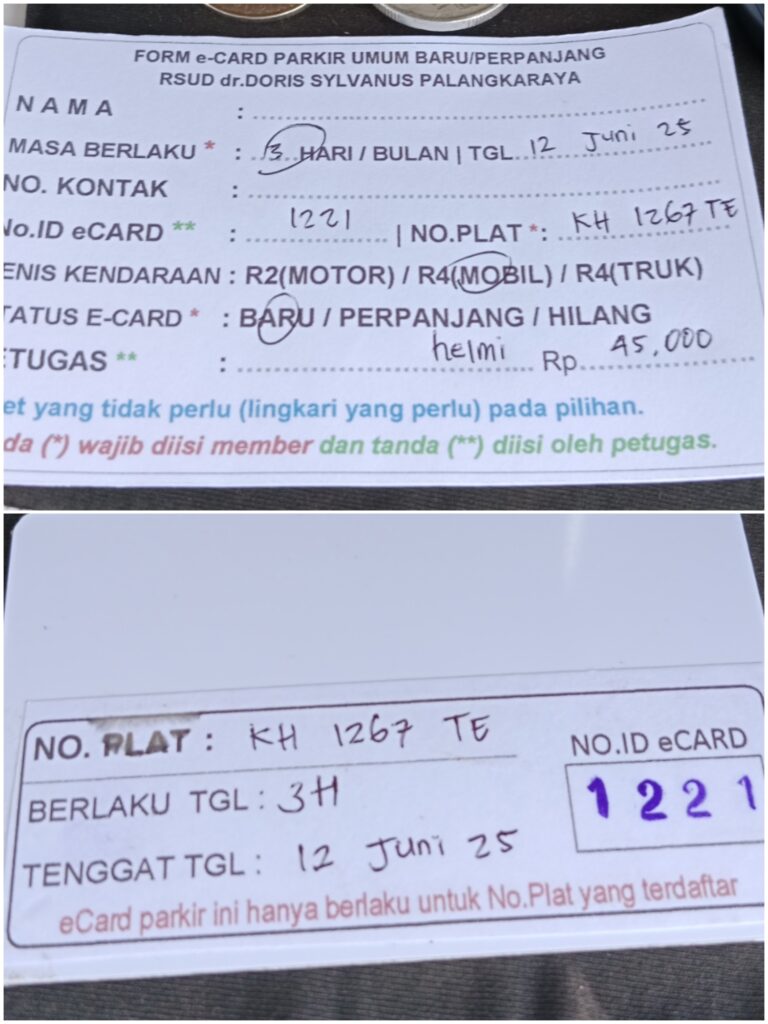 FORM e-CARD PARKIR UMUM BARU/PERPANJANG
RSUD dr.DORIS SYLVANUS PALANGKARAYA
NAMA :
MASA BERLAKU * : 3 HARI / BULAN | TGL. 12 Juni 25
NO. KONTAK :
No.ID eCARD ** : 1221 | NO.PLAT *: KH 1267 TE
ENIS KENDARAAN : R2(MOTOR) / R4(MOBIL) / R4(TRUK)
TATUS E-CARD * : BARU / PERPANJANG / HILANG
ETUGAS ** : helmi Rp. 45,000
et yang tidak perlu (lingkari yang perlu) pada pilihan.
da (*) wajib diisi member dan tanda (**) diisi oleh petugas.
NO. PLAT : KH 1267 TE
NO.ID eCARD
BERLAKU TGL : 3H
1221
TENGGAT TGL : 12 Juni 25
eCard parkir ini hanya berlaku untuk No.Plat yang terdaftar